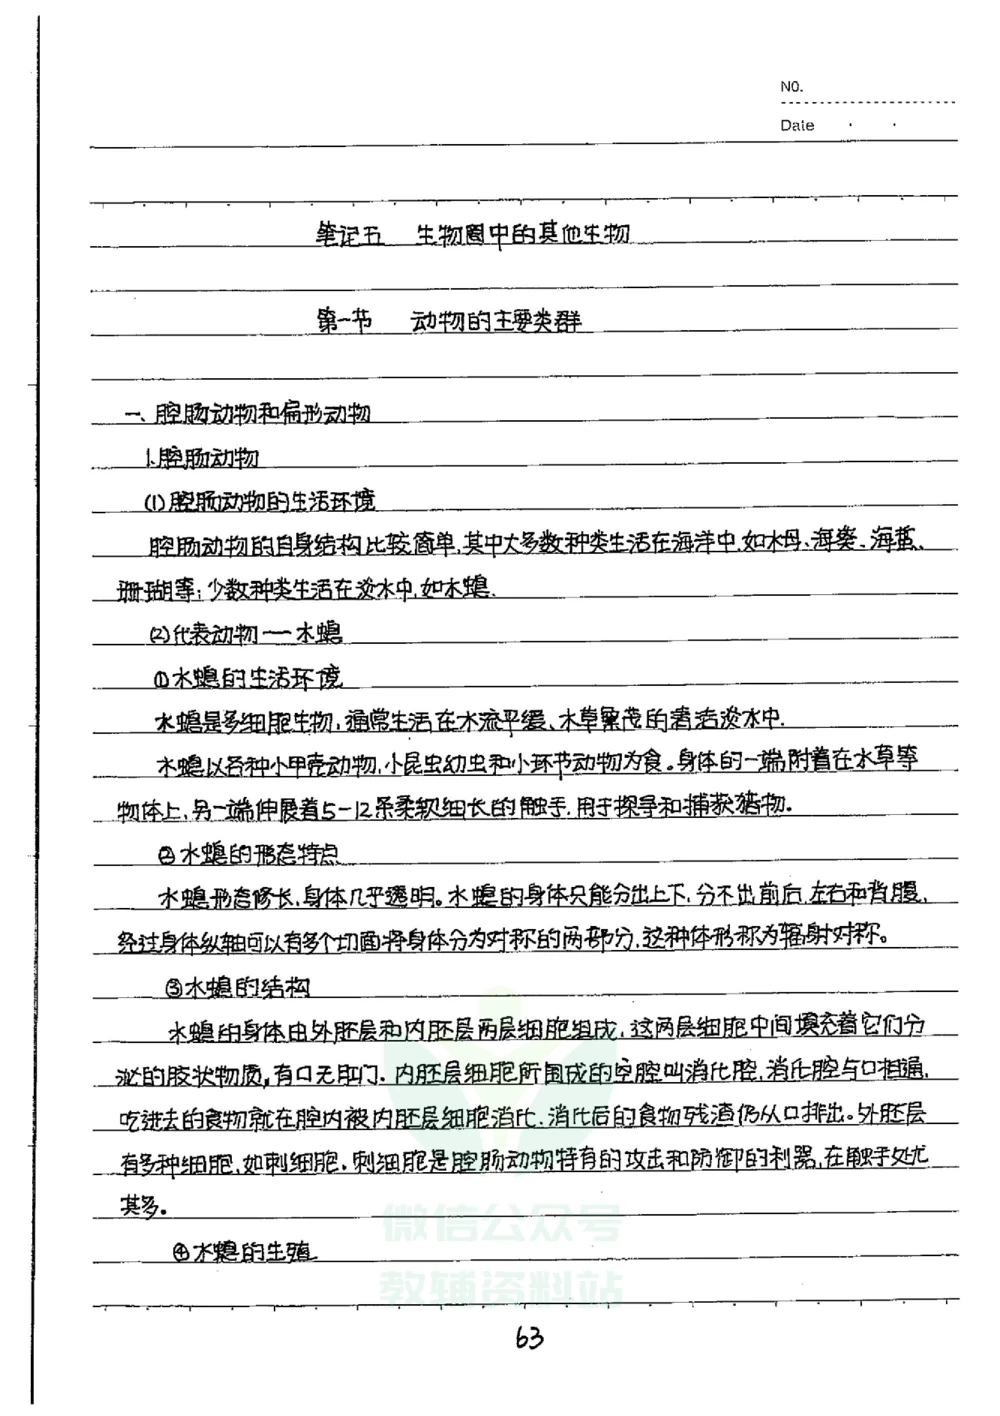 NO.
Date
笔记五 生物圈中的其他生物
第一节 动物的主要类群
一、腔肠动物和扁形动物
1.腔肠动物
(1)腔肠动物的生活环境
腔肠动物的自身结构比较简单,其中大多数种类生活在海洋中,如水母、海葵、海蜇、
珊瑚等;少数种类生活在淡水中,如水螅.
(2)代表动物——水螅
①水螅的生活环境
水螅是多细胞生物,通常生活在水流平缓、水草繁茂的清洁淡水中.
水螅以各种小甲壳动物,小昆虫幼虫和小环节动物为食。身体的一端附着在水草等
物体上,另一端伸展着5-12条柔软细长的触手,用于探寻和捕获猎物。
②水螅的形态特点
水螅形态修长,身体几乎透明。水螅的身体只能分出上下,分不出前后,左右和背腹,
经过身体纵轴可以有多个切面将身体分为对称的两部分,这种体形称为辐射对称。
③水螅的结构
水螅的身体由外胚层和内胚层两层细胞组成,这两层细胞中间填充着它们分
泌的胶状物质,有口无肛门.内胚层细胞所围成的空腔叫消化腔,消化腔与口相通,
吃进去的食物就在腔内被内胚层细胞消化.消化后的食物残渣仍从口排出。外胚层
有多种细胞,如刺细胞.刺细胞是腔肠动物特有的攻击和防御的利器,在触手处尤
其多。
④水螅的生殖
微信公众号
教辅资料站
63